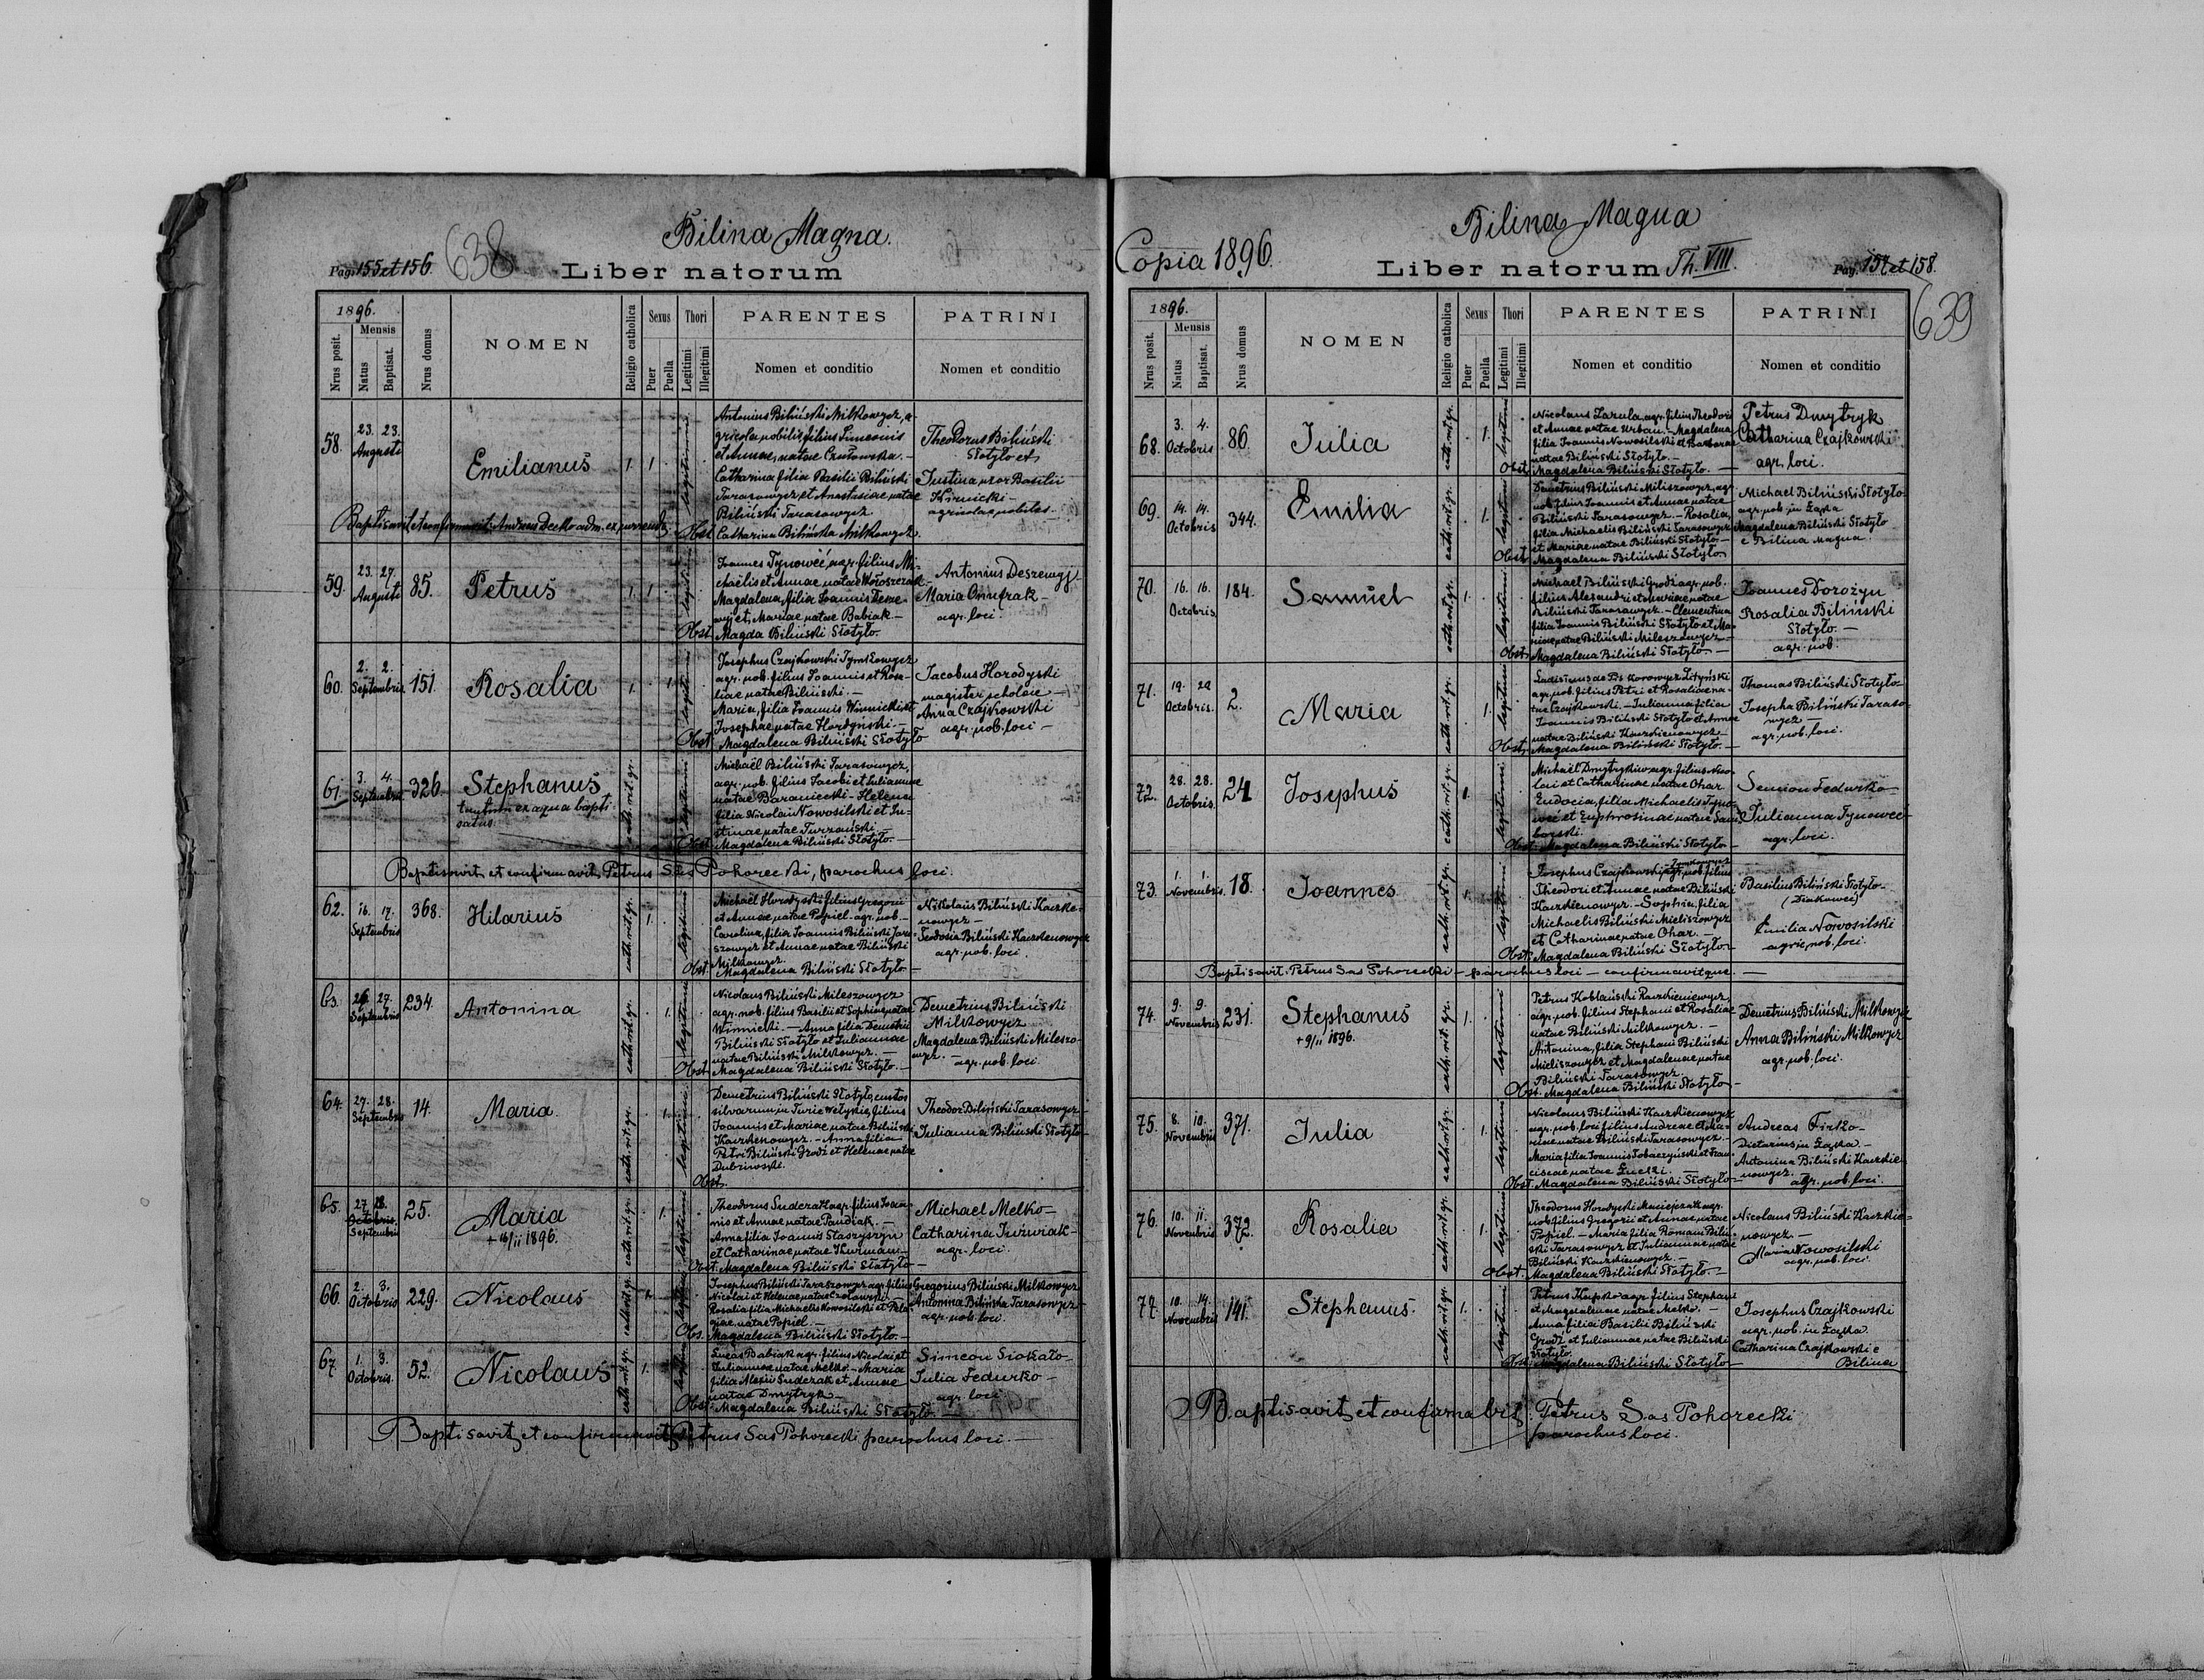 Bilina Magna.
Pag. 155 et 156. 638
Liber natorum
1896.
Nrus posit.
Mensis
Natus
Baptisat.
Nrus domus
NOMEN
Religio catholica
Sexus
Puer
Puella
Thori
Legitimi
Illegitimi
PARENTES
Nomen et conditio
PATRINI
Nomen et conditio
58.
23. 23.
Augusti
Emilianus
1. 1.
legitimi
Antonius Biliński Milkowycz, a-
gricola nobilis, filius Simeonis
et Annae, natae
Catharina filia Basilii Biliński
Tarasowycz, et Anastasiae natae
Biliński Tarasowycz.
Obst. Catharina Bilińska Milkowycz.
Theodorus Biliński
Słotyło et
Justina, uxor Basilii
agricolae nobiles.
Baptisavit et confirmavit: Andreas adm. excurrendo
59.
23. 27.
Augusti
85.
Petrus
1. 1.
Joannes Tynoweć, agr. filius Mi-
chaelis et Annae natae Wołoszczak
Magdalena, filia Joannis
et Mariae natae Babiak.—
Obst. Magda Biliński Słotyło.
Antonius
Maria Onufrak—
agr. loci.
60.
2. 2.
Septembris
151.
Rosalia
1. 1.
Josephus Czajkowski
agr. nob. filius Joannis et Rosa-
liae natae Biliński.—
Maria, filia Joannis Winnicki et
Josephae natae Hordyński.—
Obst. Magdalena Biliński Słotyło
Jacobus Horodyski
magister scholae—
Anna Czajkowski
agr. nob. loci—
61.
3. 4.
Septembris
326.
Stephanus
tantum ex aqua bapti-
satus.
cath. rit. gr.
legitimi
Michaël Biliński Tarasowycz,
agr. nob. filius Jacobi et Iuliannae
natae Baraniecki—Helena
filia Nicolai Nowosilski et Ju-
stinae natae Turzański.
Obst. Magdalena Biliński Słotyło.—
Baptisavit et confirmavit Petrus Sas Pohorecki, parochus loci.
62.
16. 17.
Septembris
368.
Hilarius
cath. rit. gr.
1.
legitimi
Michaël Horodyski filius Gregorii
et Annae natae Popiel agr. nob.—
Carolina, filia Joannis Biliński Tara-
szowycz et Annae natae Biliński
Milkowycz.
Obst. Magdalena Biliński Słotyło—
Nikolaus Biliński Kaczke-
nowycz—
Teodosia Biliński Kaczkenowycz
agr. nob. loci.
63.
26. 27.
Septembris
234.
Antonina
cath. rit. gr.
1.
legitimi
Nicolaus Biliński Mileszowycz
agr. nob. filius Basilii et Sophiae natae
Winnicki.—Anna filia Demetrii
Biliński Słotyło et Iuliannae
natae Biliński Milkowycz.—
Obst. Magdalena Biliński Słotyło.—
Demetrius Biliński
Milkowycz
Magdalena Biliński Mileszo-
wycz.—agr. nob. loci.
64.
27. 28.
Septembris
14.
Maria.
cath. rit. gr.
1.
legitimi
Demetrius Biliński Słotyło, custos
silvarum in Turie filius
Joannis et Mariae natae Biliński
Kaczkenowycz.—Anna filia
Petri Biliński Grodź et Helenae natae
Obst.
Theodor Biliński Tarasowycz—
Iulianna Biliński Słotyło—
65.
27. 28.
Octobris.
Septembris
25.
Maria
+ 16/11 1896.
cath. rit. gr.
1.
legitimi
Theodorus Suderak agr. filius Joan-
nis et Annae natae Pandiak.—
Anna filia Joannis Staszyszyn
et Catharinae natae
Obst. Magdalena Biliński Słotyło—
Michael Melko—
Catharina
agr. loci.
66.
2. 3.
Octobris
229.
Nicolaus
cath. rit. gr.
1.
Josephus Biliński Taraszowycz agr. filius
Nicolai et Helenae natae
Rosalia filia Michaelis Nowosilski et Pela-
giae natae Popiel—
Obs. Magdalena Biliński Słotyło.—
Gregorius Biliński Milkowycz
Antonina Bilińska Tarasowycz—
agr. nob. loci.
67.
1. 3.
Octobris.
52.
Nicolaus
cath. rit. gr.
1.
Lucas Babiak agr. filius Nicolai et
Iuliannae natae Melko.—Maria
filia Alexii et Annae
natae Dmytryk—
Obst. Magdalena Biliński Słotyło.—
Simeon Siokało—
Julia Fedurko—
agr. loci.
Baptisavit et confirmavit Petrus Sas Pohorecki parochus loci.—
Bilina Magna
Copia 1896.
Liber natorum Th. VIII.
Pag. 157 et 158.
639
1896.
Nrus posit.
Mensis
Natus
Baptisat.
Nrus domus
NOMEN
Religio catholica
Sexus
Puer
Puella
Thori
Legitimi
Illegitimi
PARENTES
Nomen et conditio
PATRINI
Nomen et conditio
68.
3. 4.
Octobris
86.
Julia
cath. rit. gr.
1.
legitimi
Nicolaus Zazula, agr. filius Theodori
et Annae natae Urban.—Magdalena
filia Joannis Nowosilski et Barbarae
natae Biliński Słotyło.—
Obst. Magdalena Biliński Słotyło.—
Petrus Dmytryk
Catharina Czajkowski
agr. loci.
69.
14. 14.
Octobris
344.
Emilia
cath. rit. gr.
1.
legitimi
Demetrius Biliński Miliszowycz, agr.
nob. filius Joannis et Annae natae
Biliński Tarasowycz.—Rosalia,
filia Michaelis Biliński Tarasowycz
et Mariae natae Biliński Słotyło.—
Obst. Magdalena Biliński Słotyło
Michael Biliński Słotyło
agr. nob. in Łąka
Magdalena Biliński Słotyło
e Bilina Magna.
70.
16. 16.
Octobris
184.
Samuel
cath. rit. gr.
1.
legitimi
Michaël Biliński Grodź agr. nob.
filius Alexandri et Mariae natae
Biliński Tarasowycz.—Clementina
filia Joannis Biliński Słotyło et Ma-
riae natae Biliński Mileszowycz—
Obst. Magdalena Biliński Słotyło.—
Joannes Dorożyn
Rosalia Biliński
Słotyło.—
agr. nob.
71.
19. 20
Octobris.
2.
Maria
cath. rit. gr.
1.
legitimi
agr. nob. filius Petri et Rosaliae na-
tae Czajkowski.—Iulianna filia
Joannis Biliński Słotyło et Annae
natae Biliński Kaczkenowycz—
Obst. Magdalena Biliński Słotyło.—
Thomas Biliński Słotyło—
Josepha Biliński Taraso-
wycz—
agr. nob. loci.
72.
28. 28.
Octobris.
24
Josephus
cath. rit. gr.
1.
legitimi
Michaël Dmytrykiw agr. filius Nico-
lai et Catharinae natae Ohar
Eudocia, filia Michaelis Tyno-
weć et Euphrosinae natae Sam-
borski.
Obst. Magdalena Biliński Słotyło—
Semion Fedurko—
Iulianna Tynoweć
agr. loci.
73.
1. 1.
Novembris
18.
Joannes
cath. rit. gr.
1.
legitimi
Josephus Czajkowski agr. nob. filius
Theodori et Annae natae Biliński
Kaczkenowycz.—Sophia, filia
Michaelis Biliński Mieliszowycz
et Catharinae natae Ohar.—
Obst. Magdalena Biliński Słotyło.—
Basilius Biliński Słotyło—
Emilia Nowosilski
agric. nob. loci.
Baptisavit: Petrus Sas Pohorecki—parochus loci—confirmavitque.—
74.
9. 9.
Novembris
231.
Stephanus
+ 9/11 1896.
cath. rit. gr.
1.
legitimi
Petrus Kobłański
agr. nob. filius Stephani et Rosaliae
natae Biliński Milkowycz.—
Antonina, filia Stephani Biliński
Mieliszowycz et Magdalenae natae
Biliński Tarasowycz.
Obst. Magdalena Biliński Słotyło—
Demetrius Biliński Milkowycz
Anna Biliński Milkowycz
agr. nob. loci.
75.
8. 10.
Novembris
371.
Julia
cath. rit. gr.
1.
legitimi
Nicolaus Biliński Kaczkienowycz
agr. nob. loci filius Andreae et
natae Biliński Tarasowycz.—
Maria filia Joannis Tobaczyński et Fran-
ciscae natae
Obst. Magdalena Biliński Słotyło—
Andreas Firko—
Dietarius in Łąka.—
Antonina Biliński Kaczkie-
nowycz.—
agr. nob. loci.
76.
10. 11.
Novembris
372.
Rosalia
cath. rit. gr.
1.
legitimi
Theodorus Horodyski agr.
nob. filius Gregorii et Annae natae
Popiel.—Maria filia Romani Biliń-
ski Tarasowycz et Iuliannae natae
Biliński Kaczkienowycz.—
Obst. Magdalena Biliński Słotyło.—
Nicolaus Biliński Kaczkie-
nowycz.—
Maria Nowosilski
agr. nob. loci.
77.
10. 14.
Novembris
141.
Stephanus.
cath. rit. gr.
1.
legitimi
Petrus agr. filius Stephani
et Magdalenae natae Melko.—
Anna filia Basilii Biliński
Grodź et Iuliannae natae Biliński
Słotyło.
Obst. Magdalena Biliński Słotyło—
Josephus Czajkowski
agr. nob. in Łąka.
Catharina Czajkowski e
Bilina
Baptisavit et confirmabit: Petrus Sas Pohorecki
parochus loci.